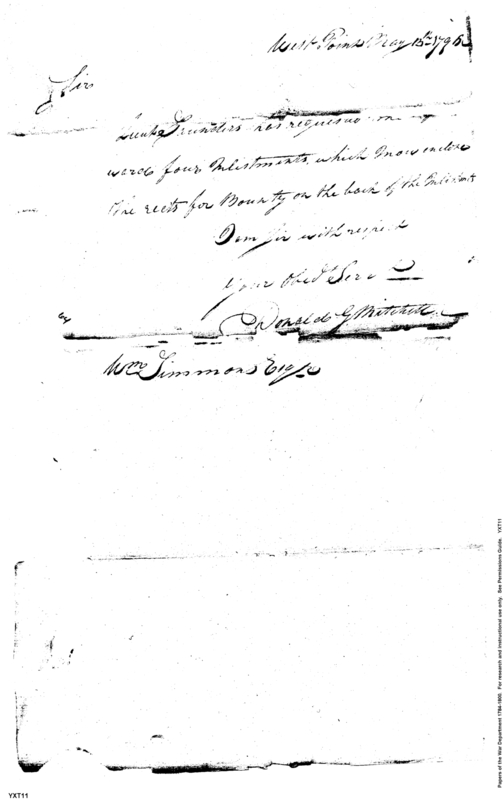 West Point May 15th 1796
Sir
Lieut Saunders has requested me
ward four Inlistments, which I now inclose
the rects for Bounty on the back of the Inlistmts
I am Sir with respect
Your Obedt Serv
Donald G Mitchell
Wm Simmons Esqr
YXT11
Papers of the War Department 1784-1800. For research and instructional use only. See Permissions Guide. YXT11